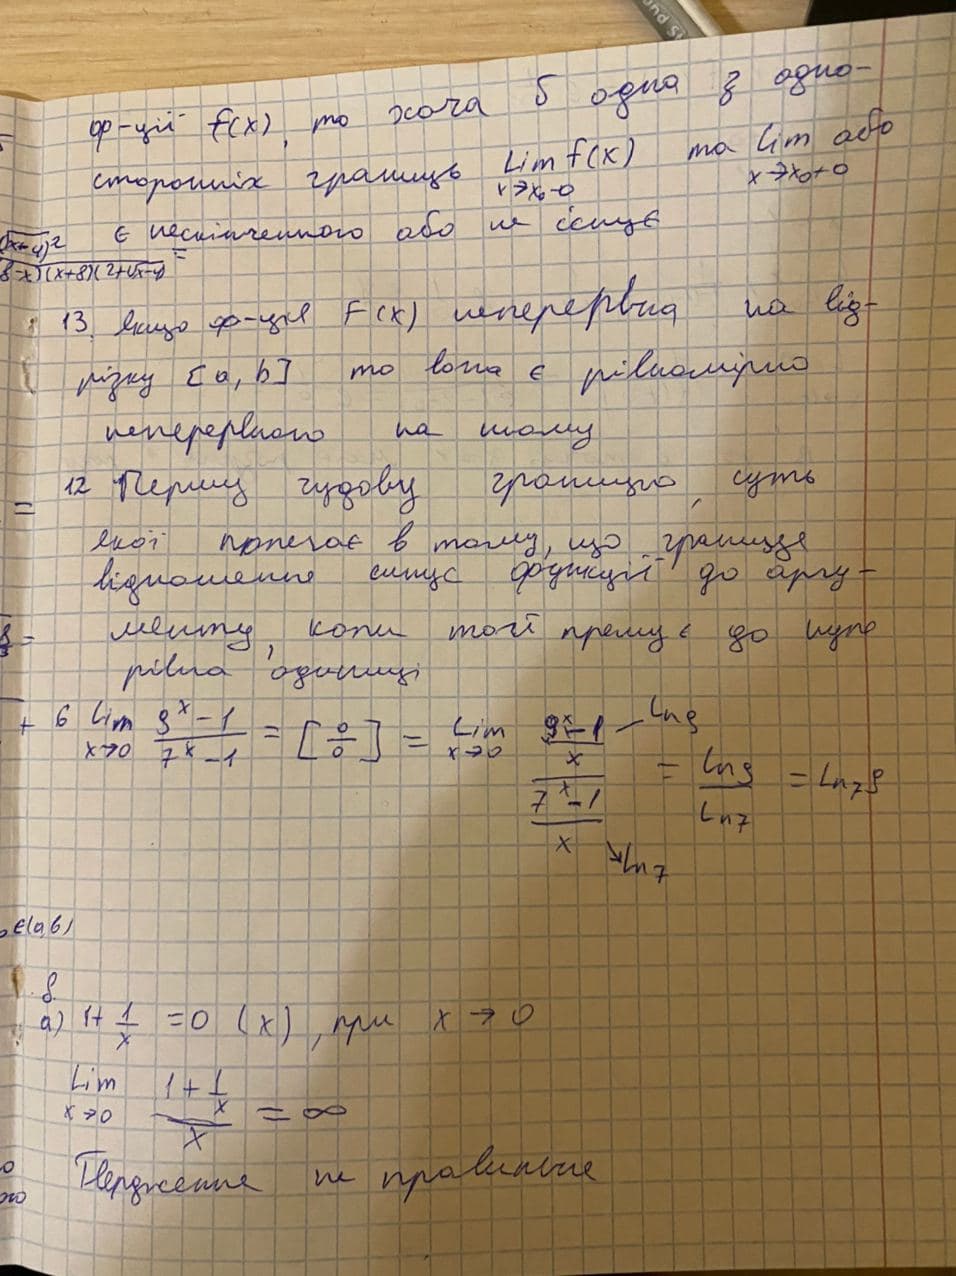 ф-ції f(x), то хоча б одна з одно-
сторонніх границь lim x→x₀-0 f(x) та lim x→x₀+0 або
є нескінченного або не існує
13. Якщо ф-ція F(x) неперервна на від-
різку [a, b] то вона є рівномірно
неперервного на ньому
12 Першу чудову границю, суть
якої полягає в тому, що границя
відношення синус функції до аргу-
менту, коли той прямує до нуля
рівна одиниці
6 lim x→0 (9^x - 1)/(7^x - 1) = [0/0] = lim x→0 ((9^x - 1)/x)/((7^x - 1)/x) = Ln9/Ln7 = Ln₇9
Ln9
Ln7
∈(a,b)
8.
a) 1 + 1/x = 0 (x), при x → 0
Lim x→0 (1 + 1/x)/x = ∞
Твердження не правильне